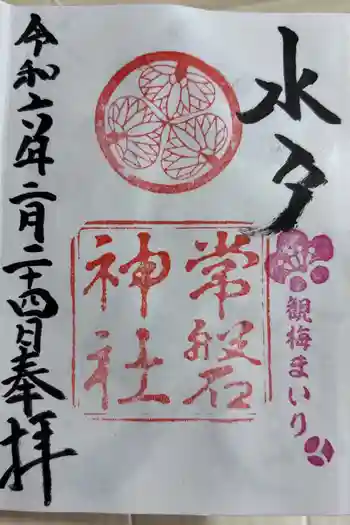 水戸
観梅まいり
常磐
神社
令和六年二月二十四日奉拝